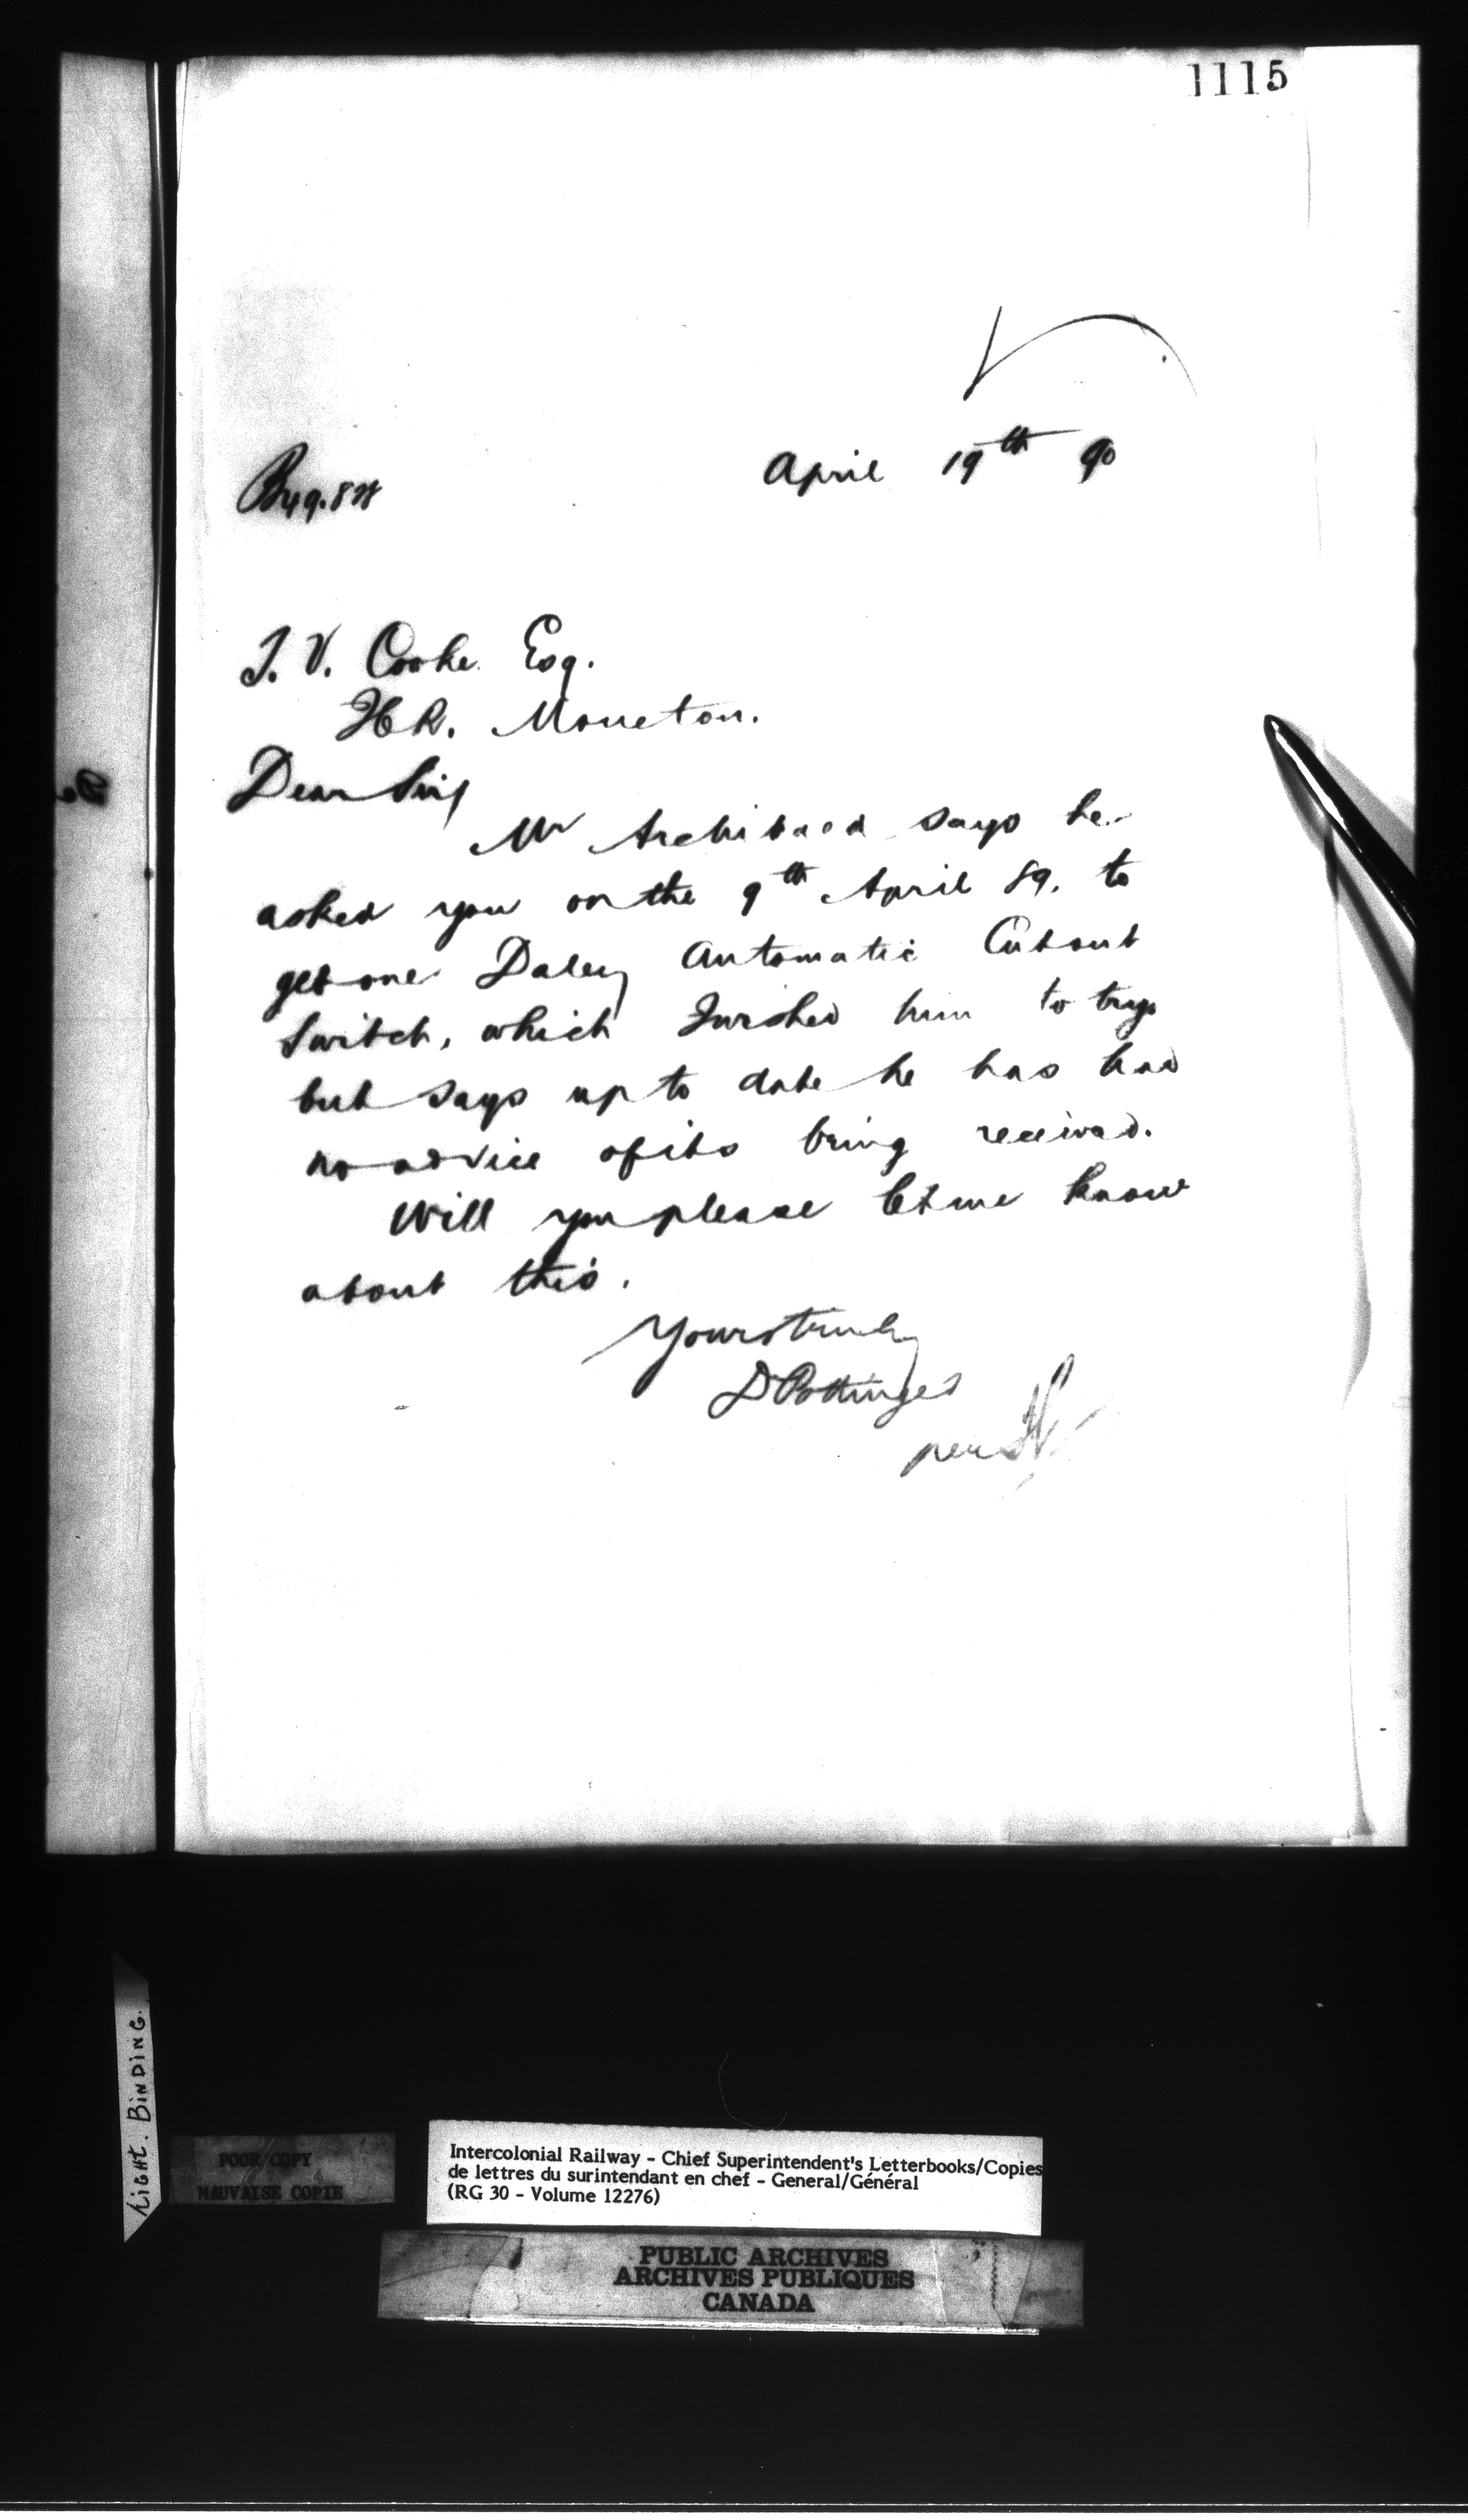 1115
April 19th 90
T. V. Cooke Esq.
Moncton.
Dear Sir,
Mr Archibald says he
asked you on the 9th April 89. to
get one Daley Automatic Cutout
Switch, which I wished him to try
but says up to date he has had
no advice of its being received.
Will you please let me know
about this.
Yours truly
D Pottinger
per
LIGHT. BINDING.
POOR COPY
MAUVAISE COPIE
Intercolonial Railway - Chief Superintendent's Letterbooks/Copies
de lettres du surintendant en chef - General/Général
(RG 30 - Volume 12276)
PUBLIC ARCHIVES
ARCHIVES PUBLIQUES
CANADA